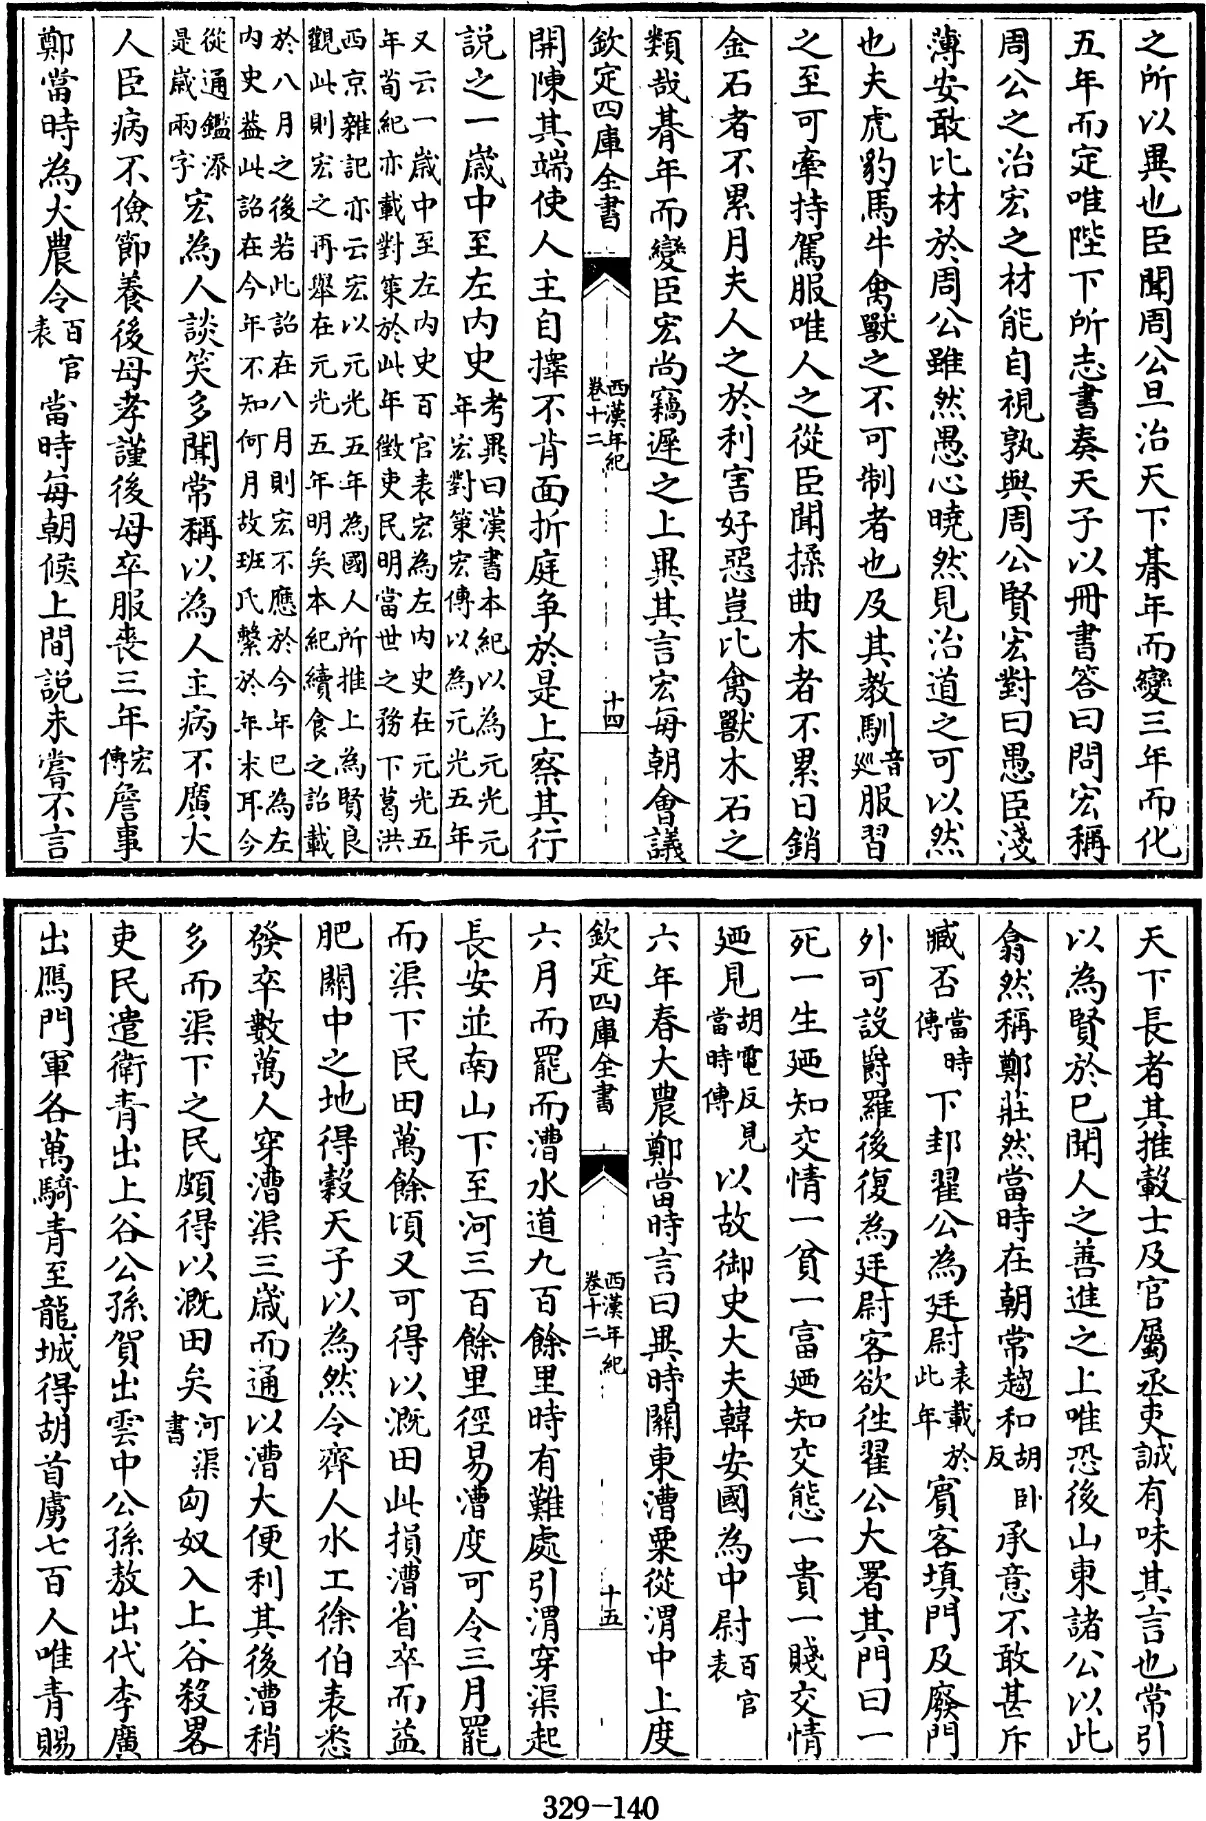 之所以異也臣聞周公旦治天下朞年而變三年而化
五年而定唯陛下所志書奏天子以冊書答曰問宏稱
周公之治宏之材能自視孰與周公賢宏對曰愚臣淺
薄安敢比材於周公雖然愚心曉然見治道之可以然
也夫虎豹馬牛禽獸之不可制者也及其教馴音廵服習
之至可牽持駕服唯人之從臣聞揉曲木者不累日銷
金石者不累月夫人之於利害好惡豈比禽獸木石之
類哉朞年而變臣宏尚竊遲之上異其言宏每朝會議
欽定四庫全書
西漢年紀
卷十二
十四
開陳其端使人主自擇不肯面折庭爭於是上察其行
説之一歲中至左内史考異曰漢書本紀以為元光元
年宏對策宏傳以為元光五年
又云一歲中至左内史百官表宏為左内史在元光五
年荀紀亦載對策於此年徵吏民明當世之務下葛洪
西京雜記亦云宏以元光五年為國人所推上為賢良
觀此則宏之再舉在元光五年明矣本紀續食之詔載
於八月之後若此詔在八月則宏不應於今年已為左
内史葢此詔在今年不知何月故班氏繫於年末耳今
從通鑑添
是歲兩字宏為人談笑多聞常稱以為人主病不廣大
人臣病不儉節養後母孝謹後母卒服喪三年宏傳詹事
鄭當時為大農令百官表當時每朝候上間説未嘗不言
天下長者其推轂士及官屬丞吏誠有味其言也常引
以為賢於已聞人之善進之上唯恐後山東諸公以此
翕然稱鄭莊然當時在朝常趨和胡卧反承意不敢甚斥
臧否當時傳下邽翟公為廷尉表載於此年賓客填門及廢門
外可設爵羅後復為廷尉客欲徃翟公大署其門曰一
死一生廼知交情一貧一富廼知交態一貴一賤交情
廼見胡電反見當時傳以故御史大夫韓安國為中尉百官表
六年春大農鄭當時言曰異時關東漕粟從渭中上度
欽定四庫全書
西漢年紀
卷十二
十五
六月而罷而漕水道九百餘里時有難處引渭穿渠起
長安並南山下至河三百餘里徑易漕度可令三月罷
而渠下民田萬餘頃又可得以溉田此損漕省卒而益
肥關中之地得穀天子以為然令齊人水工徐伯表悉
發卒數萬人穿漕渠三歲而通以漕大便利其後漕稍
多而渠下之民頗得以溉田矣河渠書匈奴入上谷殺畧
吏民遣衛青出上谷公孫賀出雲中公孫敖出代李廣
出鴈門軍各萬騎青至龍城得胡首虜七百人唯青賜
329-140